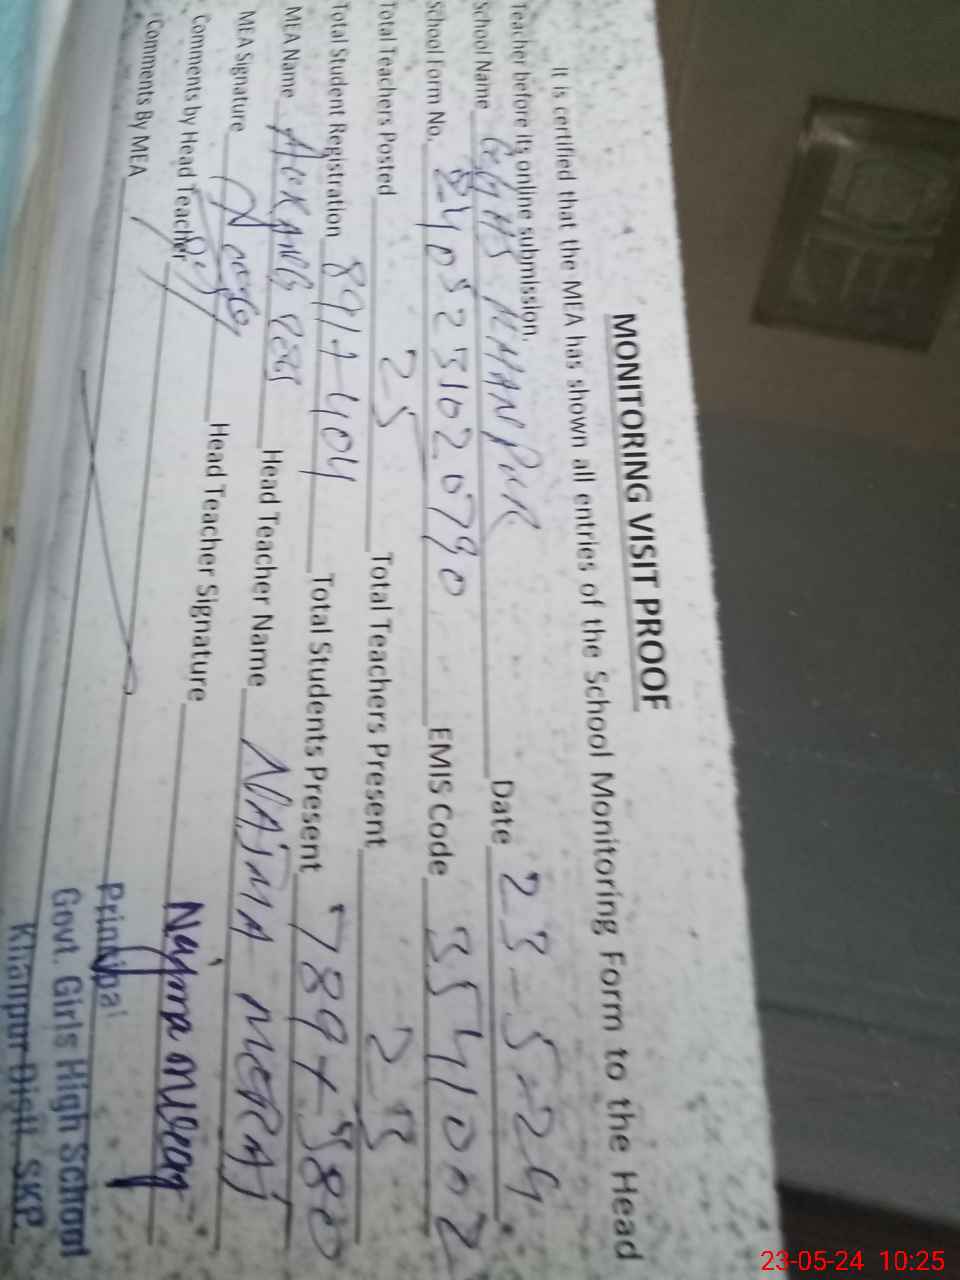 MONITORING VISIT PROOF
It is certified that the MEA has shown all entries of the School Monitoring Form to the Head
Teacher before its online submission.
School Name GGHS KHANPUR Date 23-5-24
School Form No. 2405231020790 EMIS Code 35410002
Total Teachers Posted 25 Total Teachers Present 23
Total Student Registration 891+404 Total Students Present 789+380
MEA Name AURANG Head Teacher Name NAJMA MERAJ
MEA Signature Head Teacher Signature Najma
Comments by Head Teacher
Comments By MEA
Principal
Govt. Girls High School
Khanpur Distt. SKP.
23-05-24 10:25